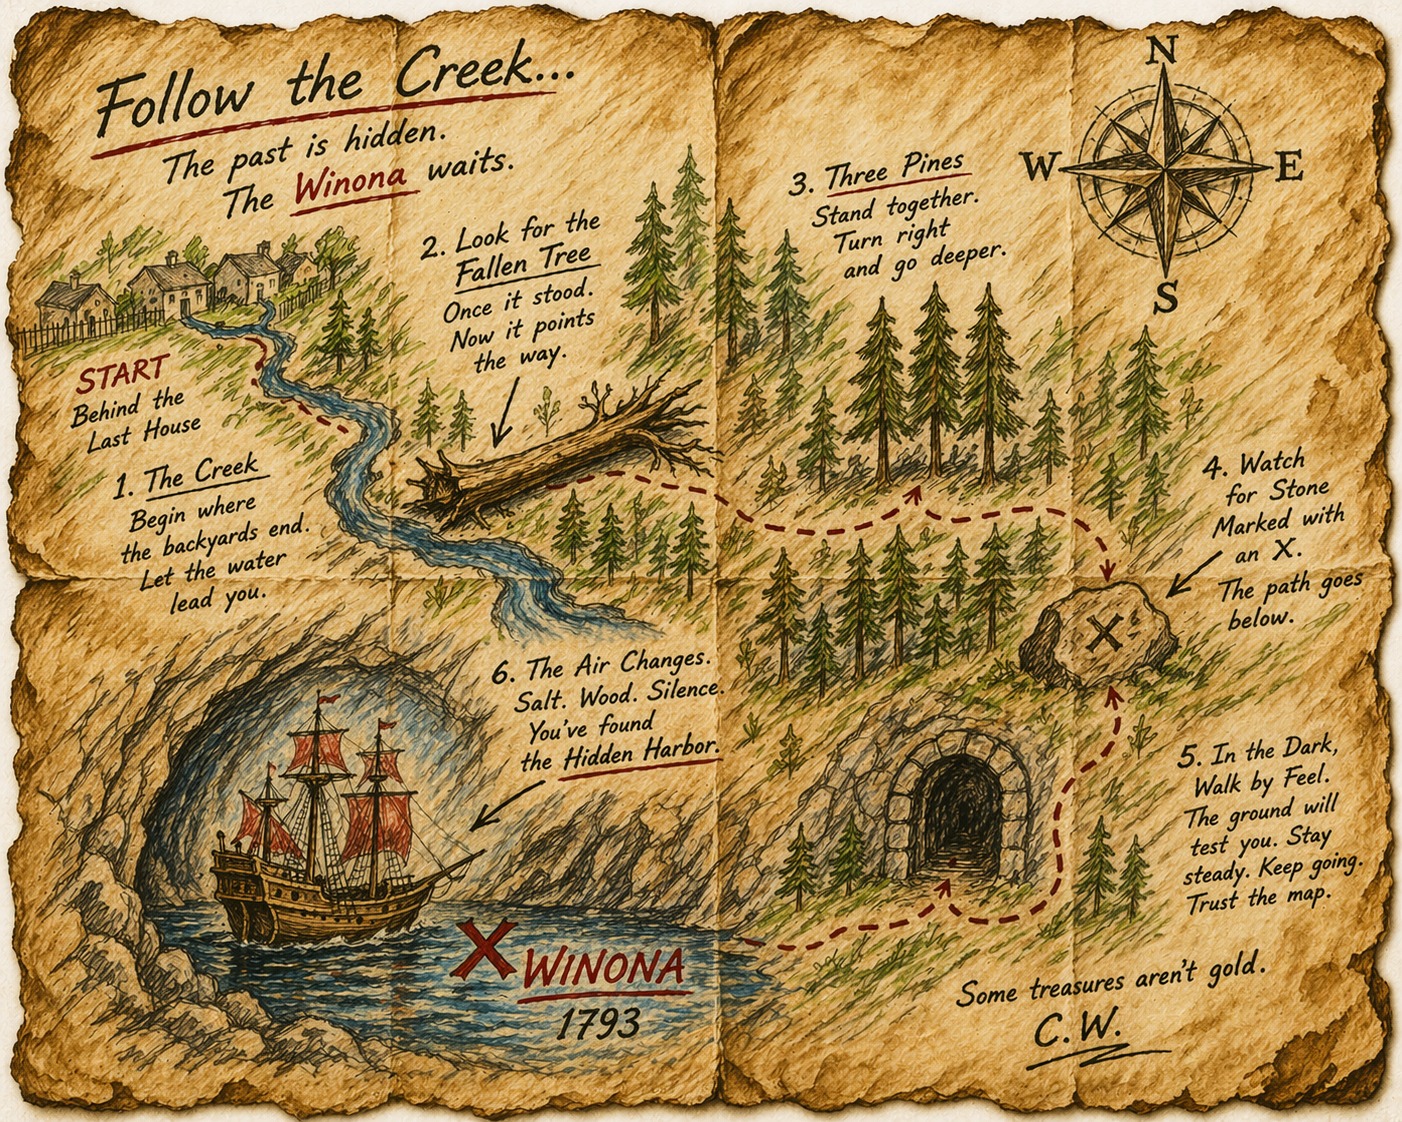 Follow the Creek...
The past is hidden.
The Winona waits.
START
Behind the
Last House
1. The Creek
Begin where
the backyards end.
Let the water
lead you.
2. Look for the
Fallen Tree
Once it stood.
Now it points
the way.
3. Three Pines
Stand together.
Turn right
and go deeper.
N
W
E
S
4. Watch
for Stone
Marked with
an X.
The path goes
below.
X
5. In the Dark,
Walk by Feel.
The ground will
test you. Stay
steady. Keep going.
Trust the map.
6. The Air Changes.
Salt. Wood. Silence.
You've found
the Hidden Harbor.
X WINONA
1793
Some treasures aren't gold.
C.W.